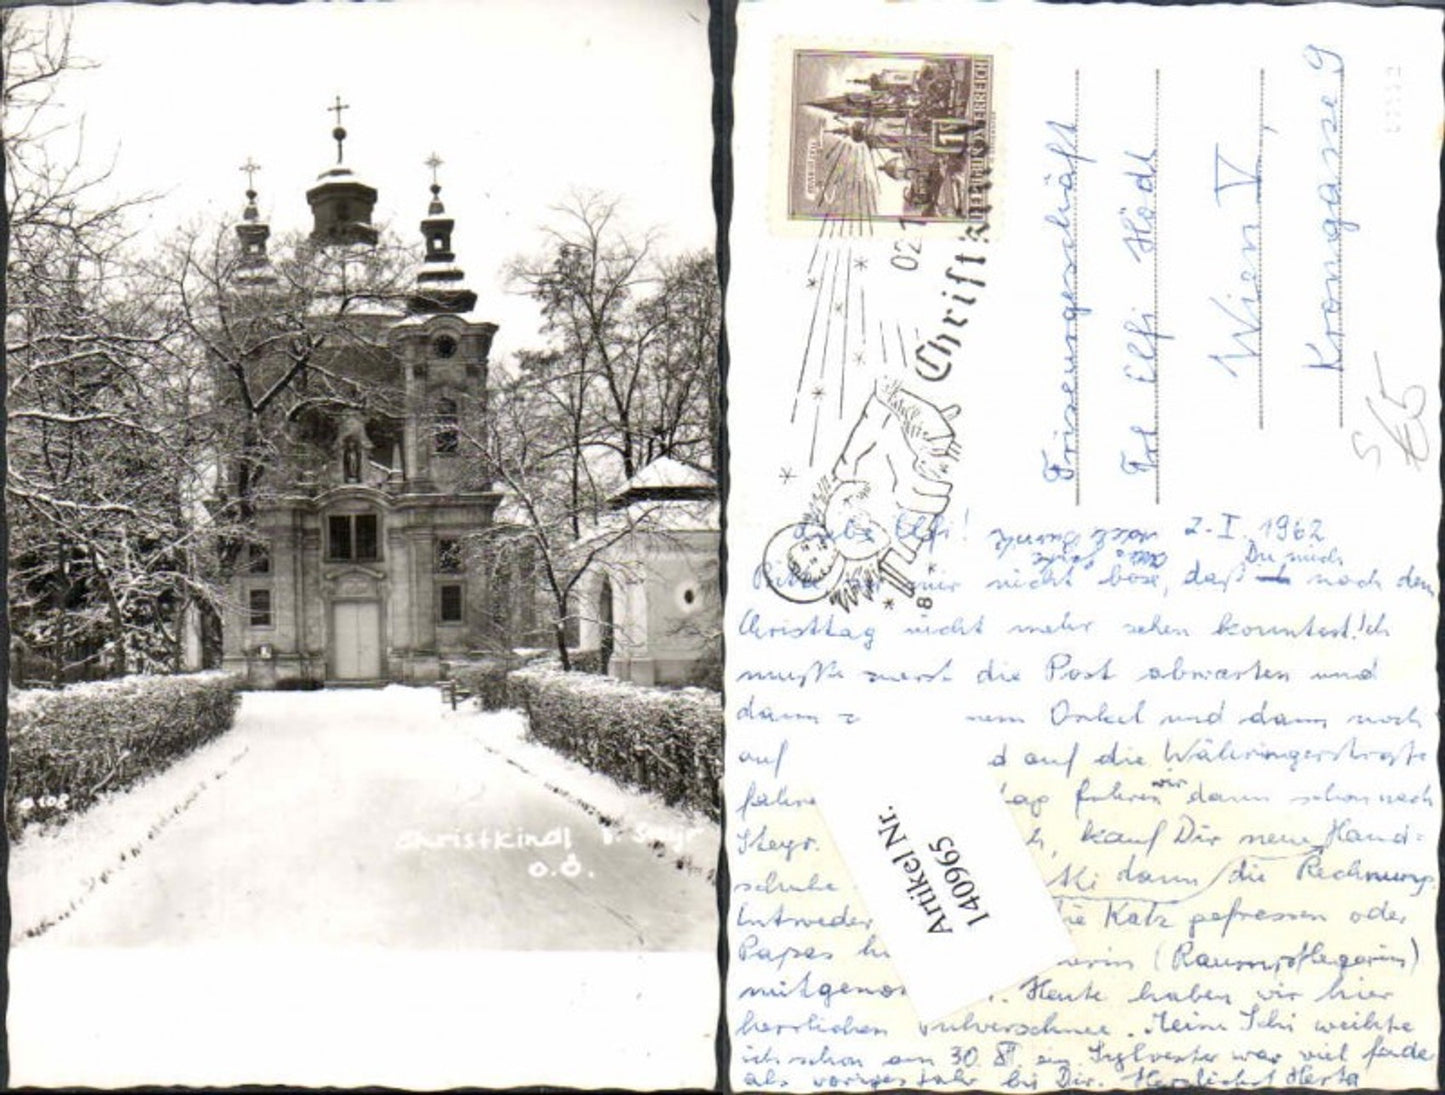 0108
Christkindl b. Steyr
O.Ö.
ÖSTERREICH
02.1
Christk
Friseurgeschäft
Frl Elfi Hödl
Wien V,
Krongasse 9
Liebe Elfi! 2-I. 1962
Du mich
mir nicht böse, daß nach dem
Christtag nicht mehr sehen konntest! Ich
mußte zuerst die Post abwarten und
dann z nem Onkel und dann noch
auf d auf die Währingerstraße
fahre tag fuhren wir dann schon nach
Steyr. h, kauf Dir neue Hand=
schuhe dann die Rechnung.
Entweder die Katz gefressen oder
Papas erin (Raumpflegerin)
mitgeno . Heute haben wir hier
herrlichen Pulverschnee. Meine Schi weihte
ich schon am 30. XII ein Sylvester war viel fader
als voriges Jahr bei Dir. Herzlichst Herta
Artikel Nr.
140965
€5